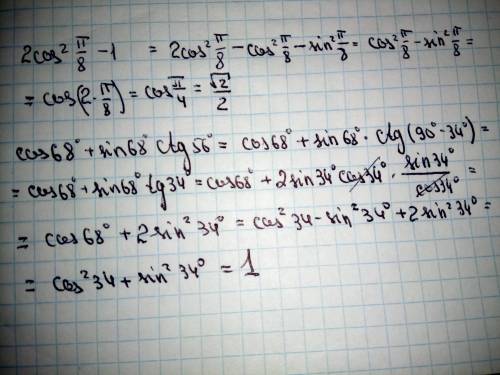 2cos² π/8 - 1 = 2cos² π/8 - cos² π/8 - sin² π/8 = cos² π/8 - sin² π/8 =
= cos(2·π/8) = cos π/4 = √2/2
cos68° + sin68° ctg56° = cos68° + sin68° · ctg(90° - 34°) =
= cos68° + sin68° tg34° = cos68° + 2sin34° cos34° · sin34°/cos34° =
= cos68° + 2sin² 34° = cos² 34 - sin² 34° + 2sin² 34° =
= cos² 34 + sin² 34° = 1